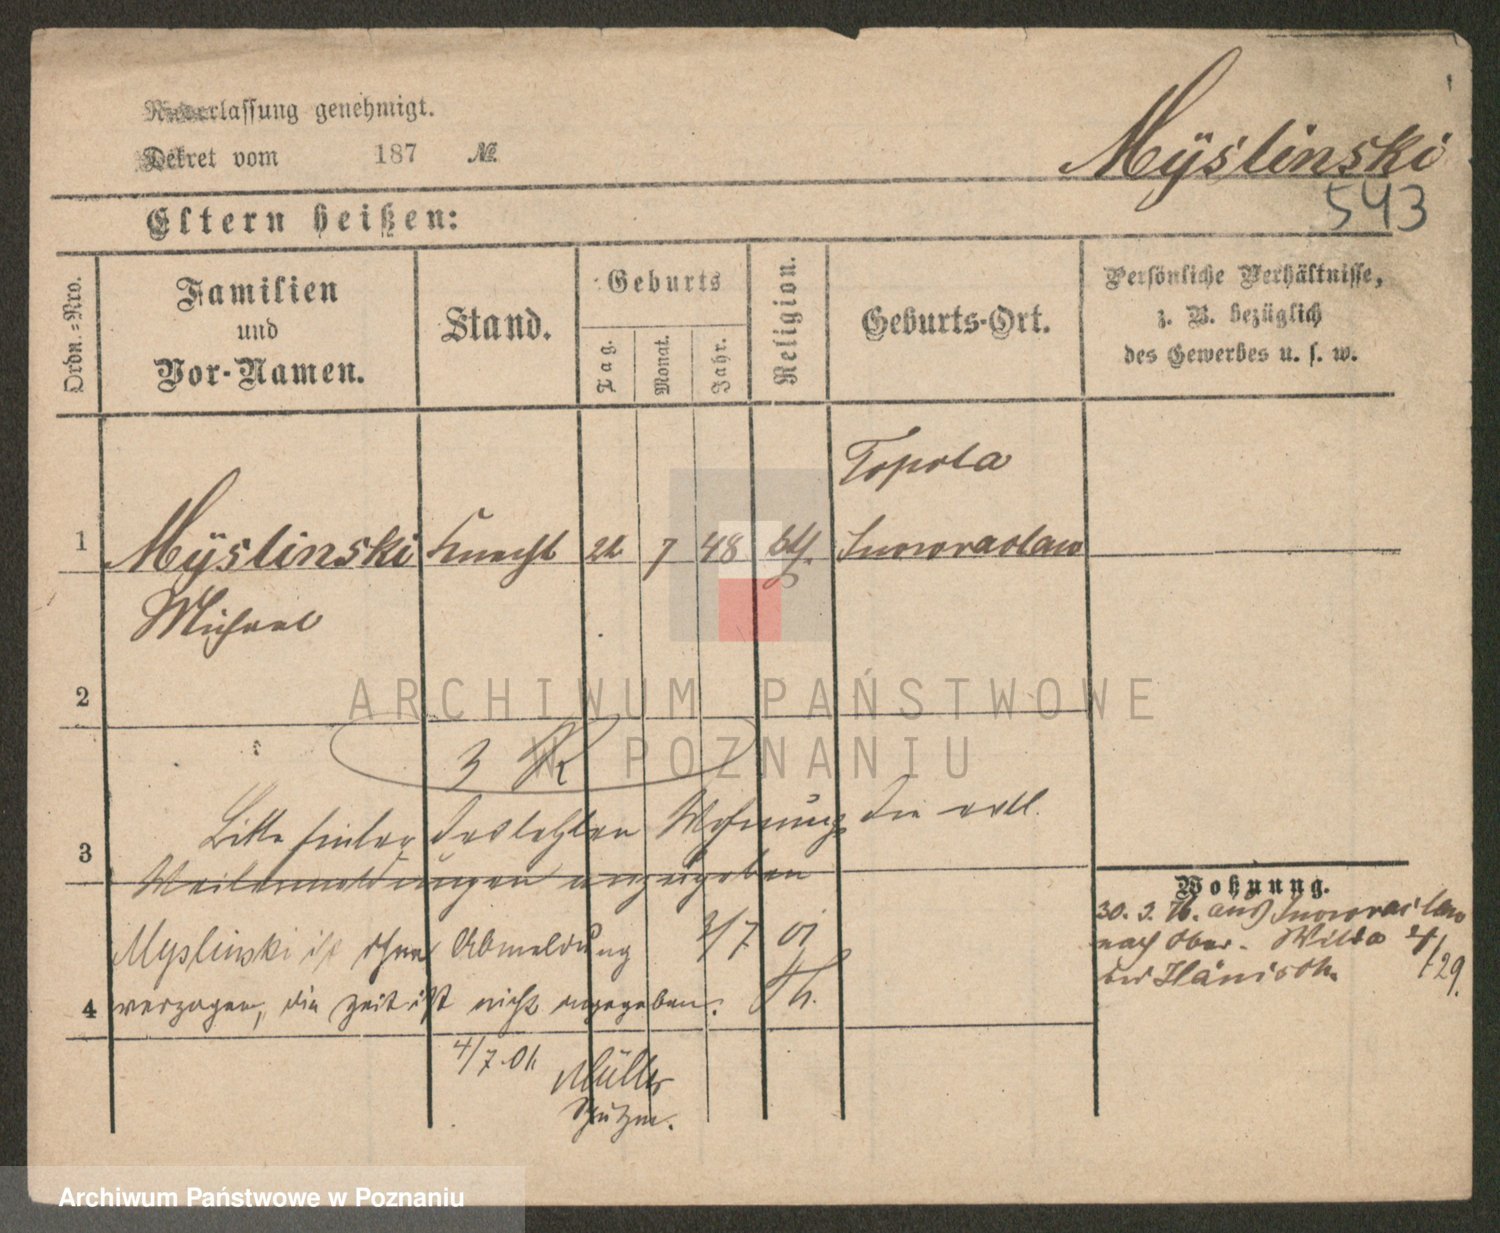 Niederlassung genehmigt.
Dekret vom 187 №.
Myslinski
543
Eltern heißen:
Ordn.=Nro.
Familien
und
Vor-Namen.
Stand.
Geburts
Tag.
Monat.
Jahr.
Religion.
Geburts-Ort.
Persönliche Verhältnisse,
z. B. bezüglich
des Gewerbes u. s. w.
Topola
1 Mÿslinski Knecht 21 7 48 kth. Inowraclaw
Michael
2
3 K
Bitte hinter der letzten Wohnung die evtl.
3
Weitermeldungen anzugeben
Wohnung.
30. 3. 76. aus Inowraclaw
nach Ober-Wilda 4/29.
bei Hänisch
Myslinski ist ohne Abmeldung 3/7 01
4 verzogen, die Zeit ist nicht angegeben. Th.
4/7.01.
Müller
Schutzm.
ARCHIWUM PAŃSTWOWE
W POZNANIU
Archiwum Państwowe w Poznaniu